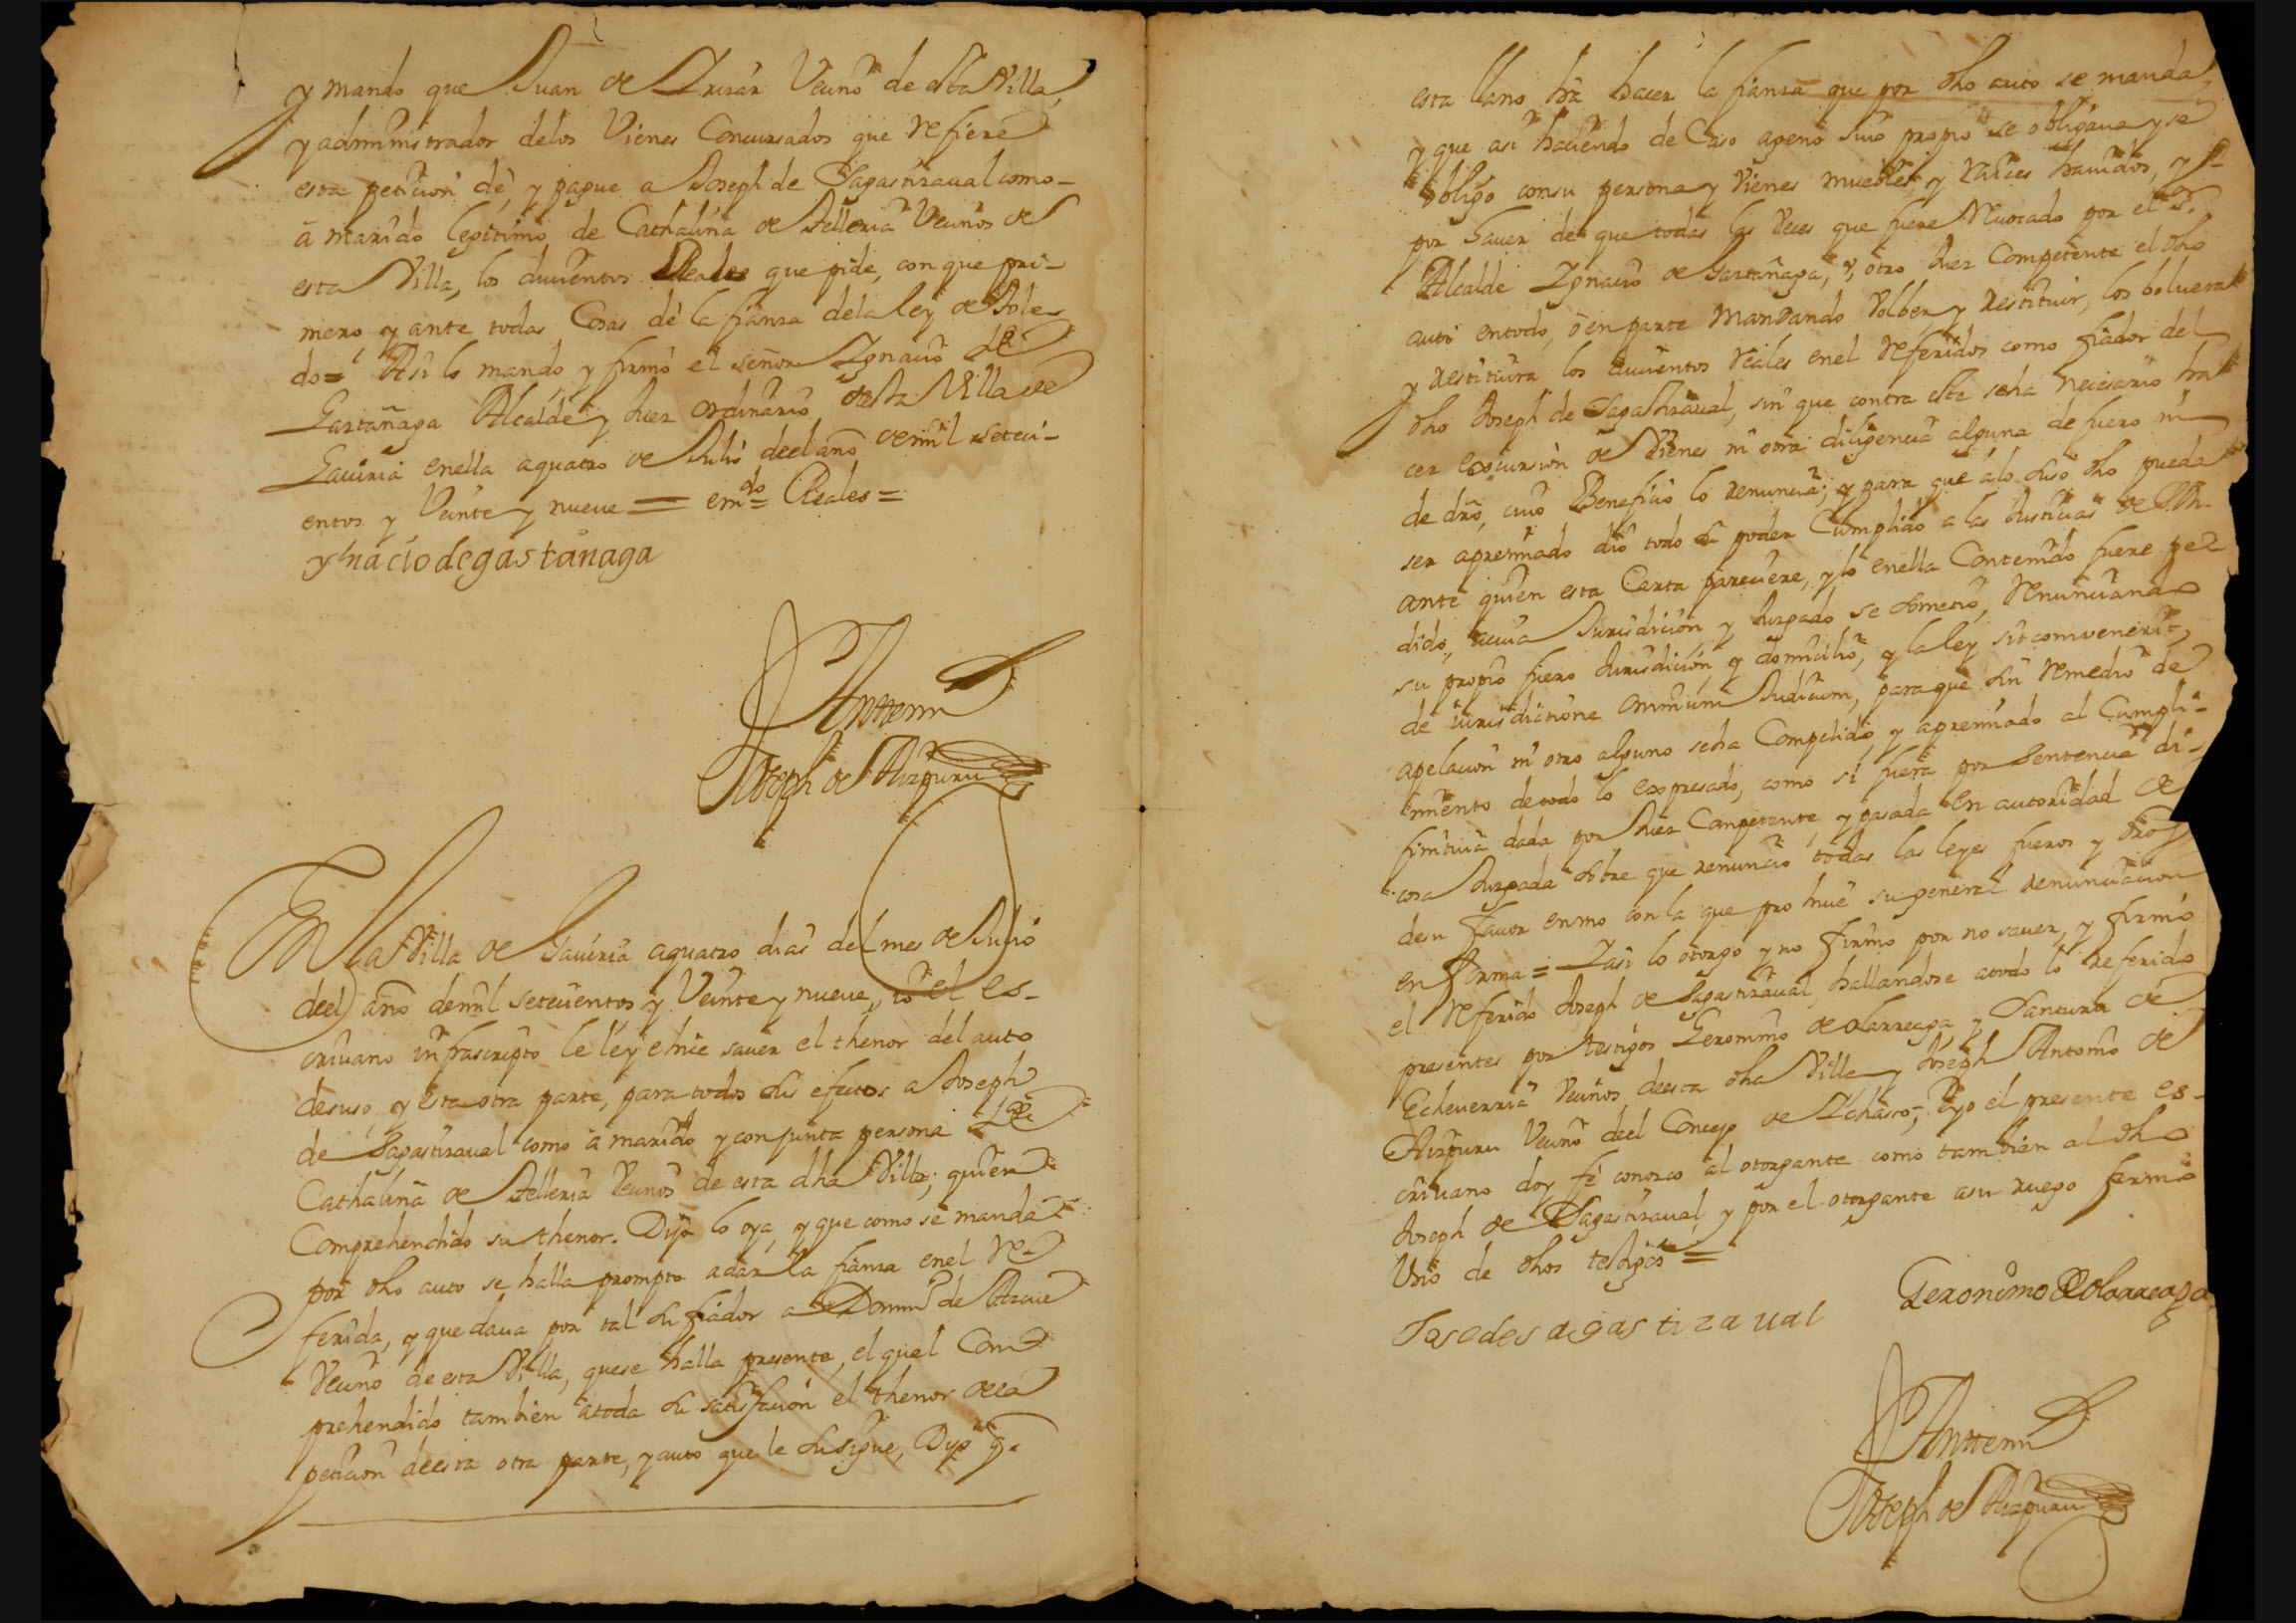 y mando que Juan de Yrizar Vecino de esta Villa,
y administrador delos Vienes Concursados que refiere
esta peticion dè, y pague a Joseph de Sagastizaual como-
à marido legitimo de Cathalina de Telleria Vecinos de
esta Villa, los ducientos Reales que pide, con que pri-
mero y ante todas Cosas dè la fianza dela ley de Tole
do= Asi lo mando y firmò el señor Ygnacio de
Gastañaga Alcalde y Juez ordinario desta Villa de
Gaviria enella a quatro de Julio deel año demil seteci-
entos y Veinte y nueve = em.do = Reales =
ynacio de gastanaga
Antemi
Joseph de Aizpuru
En la Villa de Gaviria a quatro dias del mes de Julio
deel año demil setecientos y Veinte y nueve, yo el es-
criuano infrascripto le leÿ e hice sauer el thenor del auto
desuso, y esta otra parte, para todos sus efectos a Joseph
de Sagastizaual como à marido y conjunta persona de
Cathalina de Telleria Vecinos de esta dha Villa; quien
Comprehendido su thenor. Dijo lo oya, y que como se manda
por dho auto se halla prompto adar la fianza enel re
ferida, y que daua por tal su fiador a Domin.o de Arrue
Vecino de esta Villa, quese halla presente, el qual Com
prehendido tambien àtoda su satisfacion el thenor dela
peticion deesta otra parte, y auto que le susigue, Dijo q.e
esta llano ha hacer la fianza que por dho auto se manda,
y que asi haciendo de Caso ageno suio propio se obligaua y se
obligo consu persona y Vienes muebles y raices hauidos, y p.r
por hauer de que todas las Veces que fuere reuocado por el S.or
Alcalde Ygnacio de Gastañaga, ù, otro Juez Competente el dho
auto entodo, ò en parte mandando Volber y restituir, los boluera
y restituira los ducientos reales enel referidos como fiador del
dho Joseph de Sagastizaual, sin que contra este seha necesario ha
cer excursion de Vienes ni otra diligencia alguna de fuero ni
de dro, cuio Beneficio lo renuncia; y para que àlo suso dho pueda
ser apremiado diò todo su poder Cumplido a las Justicias de S.M.
ante quien esta Carta pareciere, y lo enella Contenido fuere pe
dido, acuia Jurisdicion y Juzgado se sometiò, renunciando
su propio fuero Jurisdicion y domicilio, y la ley sit comvenerit,
de iurisdictione omnium Judicum, para que sin remedio de
apelacion ni otro alguno seha Compelido y apremiado al Cumpli-
imiento detodo lo expresado, como si fuera por sentencia di-
finitiua dada por Juez Competente y pasada en autoridad de
cosa Juzgada sobre que renunciò todas las leyes fueros y dros
desu fauor enmo con la que prohiue su general renunciacion
en forma = Y asi lo otorgo y no firmo por no sauer, y firmò
el referido Joseph de Sagastizaual, hallandose atodo lo referido
presentes por testigos Geronimo de olarreaga, y Santuru de
Echeuerria Vecinos deesta dha Villa y Joseph Antonio de
Aizpuru Vecino deel Concejo de Ychasso; E yo el presente es-
criuano doy fè conozco al otorgante como tambien al dho
Joseph de Sagastizaual, y por el otorgante asu ruego firmò
Vno de dhos testigos =
Josedesagastizaual
Geronimo De olarreaga
Antemi
Joseph de Aizpuru